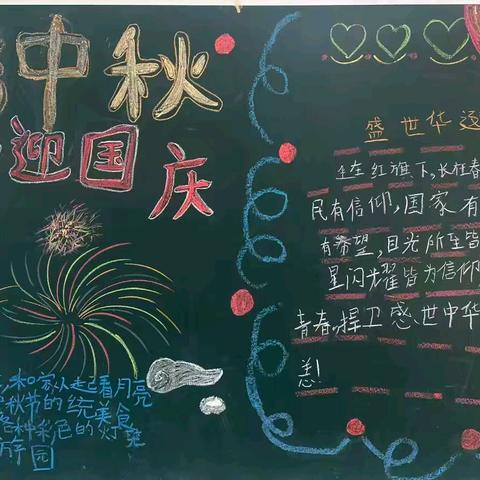 中秋
迎国庆
和家人一起看月亮
秋节的传统美食
各种彩色的灯笼
游园
盛世华
生在红旗下,长在春
民有信仰,国家有
有希望,目光所至皆
星闪耀皆为信仰
青春,捍卫盛世中华
恙!